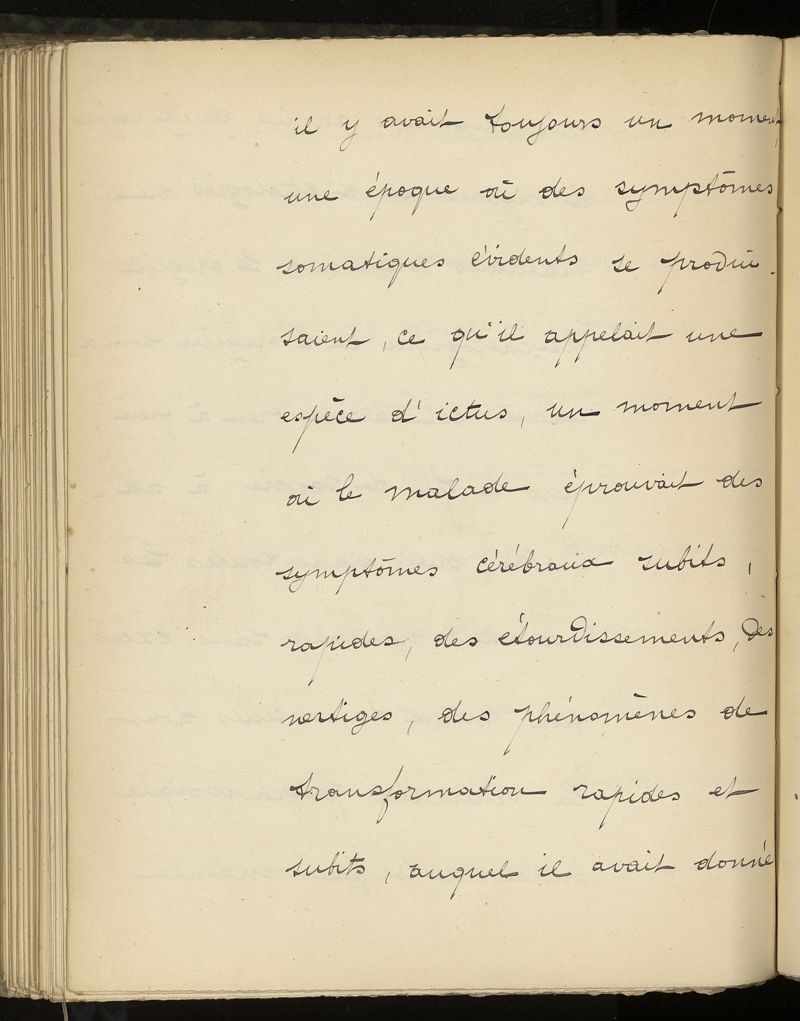 il y avait toujours un moment,
une époque où des symptômes
somatiques évidents se produi-
saient, ce qu'il appelait une
espèce d'ictus, un moment
où le malade éprouvait des
symptômes cérébraux subits,
rapides, des étourdissements, des
vertiges, des phénomènes de
transformation rapides et
subits, auquel il avait donné